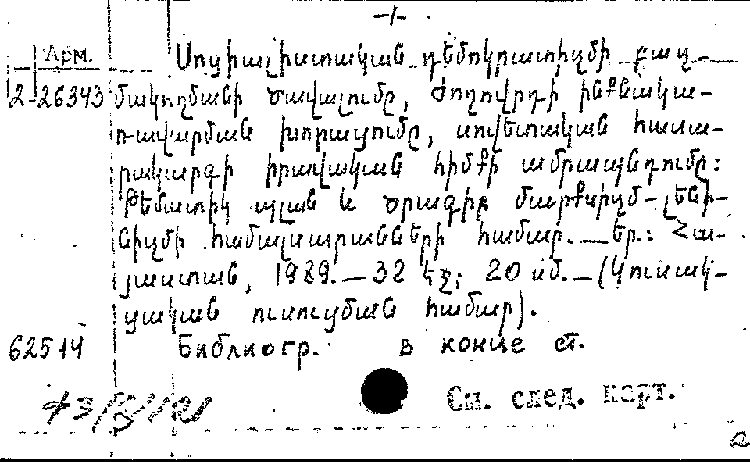 -1-
Арм.
Սոցիալիստական դեմոկրատիզմի բազ-
2-26343 մակողմանի ծավալումը, ժողովրդի ինքնակա-
ռավարման խորացումը, սովետական հասա-
րակարգի իրավական հիմքի ամրապնդումը:
Թեմատիկ պլան և ծրագիր մարքսիզմ-լենի-
նիզմի համալսարանների համար.—Եր.: Հա-
յաստան, 1989.—32 էջ; 20 սմ.—(Կուսակ-
ցական ուսուցման համար).
62514 Библиогр. в конце ст.
См. след. карт.